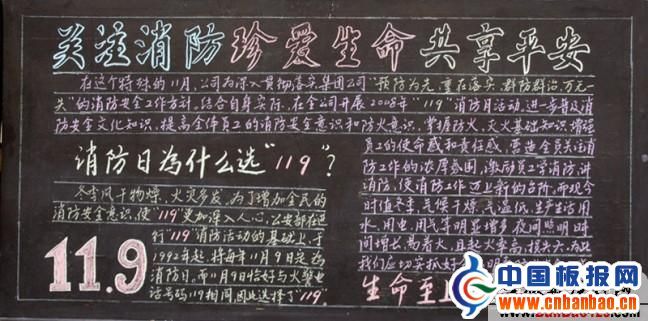 关注消防 珍爱生命 共享平安
在这个特殊的11月,公司为深入贯彻落实集团公司"预防为先,重在落实,群防群治,万无一
失"的消防安全工作方针,结合自身实际,在全公司开展2008年"119"消防月活动,进一步普及消
防安全文化知识,提高全体员工的消防安全意识和防火意识,掌握防火、灭火基础知识,增强
员工的使命感和责任感,营造全员关注消
防工作的浓厚氛围,激励员工学消防,讲
消防,使消防工作迈上新的台阶。而现今
时值冬季,气候干燥,气温低,生产生活用
水、用电、用气等明显增多,夜间照明时
间增长,易着火,且起火率高,损失大,为此
我们应切实
生命至上
消防日為什么选"119"?
冬季风干物燥、火灾多发,为了增加全民的
消防安全意识,使"119"更加深入人心,公安部在进
行"119"消防活动的基础上,于
1992年起,将每年11月9日定为
消防日。而11月9日恰好与火警电
话号码119相同,因此选择了"119"。
11.9
中国板报网
www.cnbanbao.cn